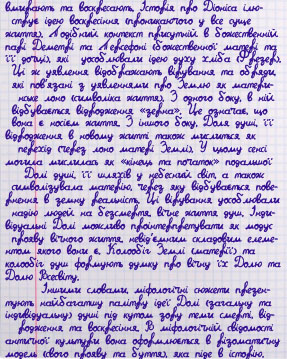 вмирають та воскресають. Історія про Діоніса ілю-
струє ідею воскресіння (проникаючого у все суще
життя). Подібний контекст присутній в божественній
парі Деметрі та Персефоні (божественної матері та
її дочці), які уособлювали ідею духу хліба (Фрезер).
Ці ж уявлення відображають вірування та обряди,
які пов'язані з уявленнями про Землю як материн-
ське лоно (символіка життя). З одного боку, в ній
відбувається відродження «зерна». Це означає, що
вона є носієм життя. З іншого боку, Доля душі, її
відродження в новому житті також мислиться як
перехід (через лоно матері Землі). У цьому сенсі
могила мислилась як «кінець та початок» подальшої
Долі душі, її шляхів у небесний світ, а також
символізувала матерію, через яку відбувається пове-
рнення в земну реальність. Ці вірування уособлювали
надію людей на безсмертя, вічне життя душі. Інди-
відуальні Долі можливо проінтерпретувати як модус
прояву вічного життя, невід'ємним складовим елеме-
нтом якого вони є. Колообіг Землі (матерії) та
колообіг душ формують думку про вічну їх Долю та
Долю Всесвіту.
Іншими словами, міфологічні сюжети презен-
тують найбагатшу палітру ідеї Долі (загальну та
індивідуальну) душі під кутом зору теми смерті, від-
родження та воскресіння. В міфологічній свідомості
античної культури вона оформлюється в різоматичну
модель свого прояву та буття, яка піде в історію,